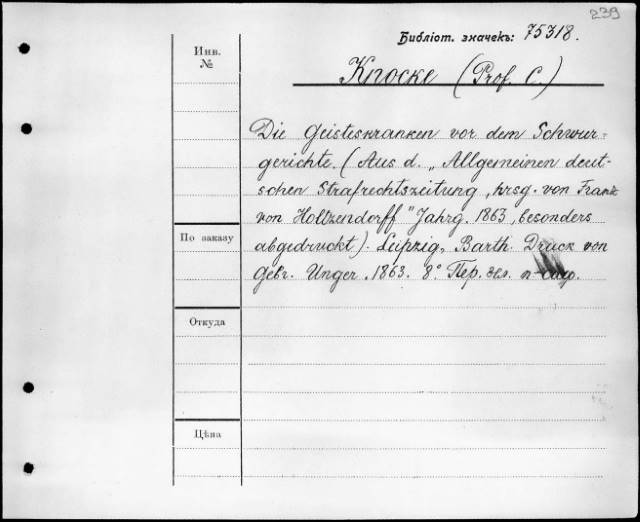 239
Библіот. значекъ: 75318.
Инв.
№
Knocke (Prof. C.)
Die Geisteskranken vor dem Schwur-
gerichte. (Aus d. „Allgemeinen deut-
schen Strafrechtszeitung, hrsg. von Franz
von Holtzendorff" Jahrg. 1863, besonders
По заказу
abgedruckt). Leipzig, Barth. Druck von
Gebr. Unger. 1863. 8° Пер.
Откуда
Цѣна